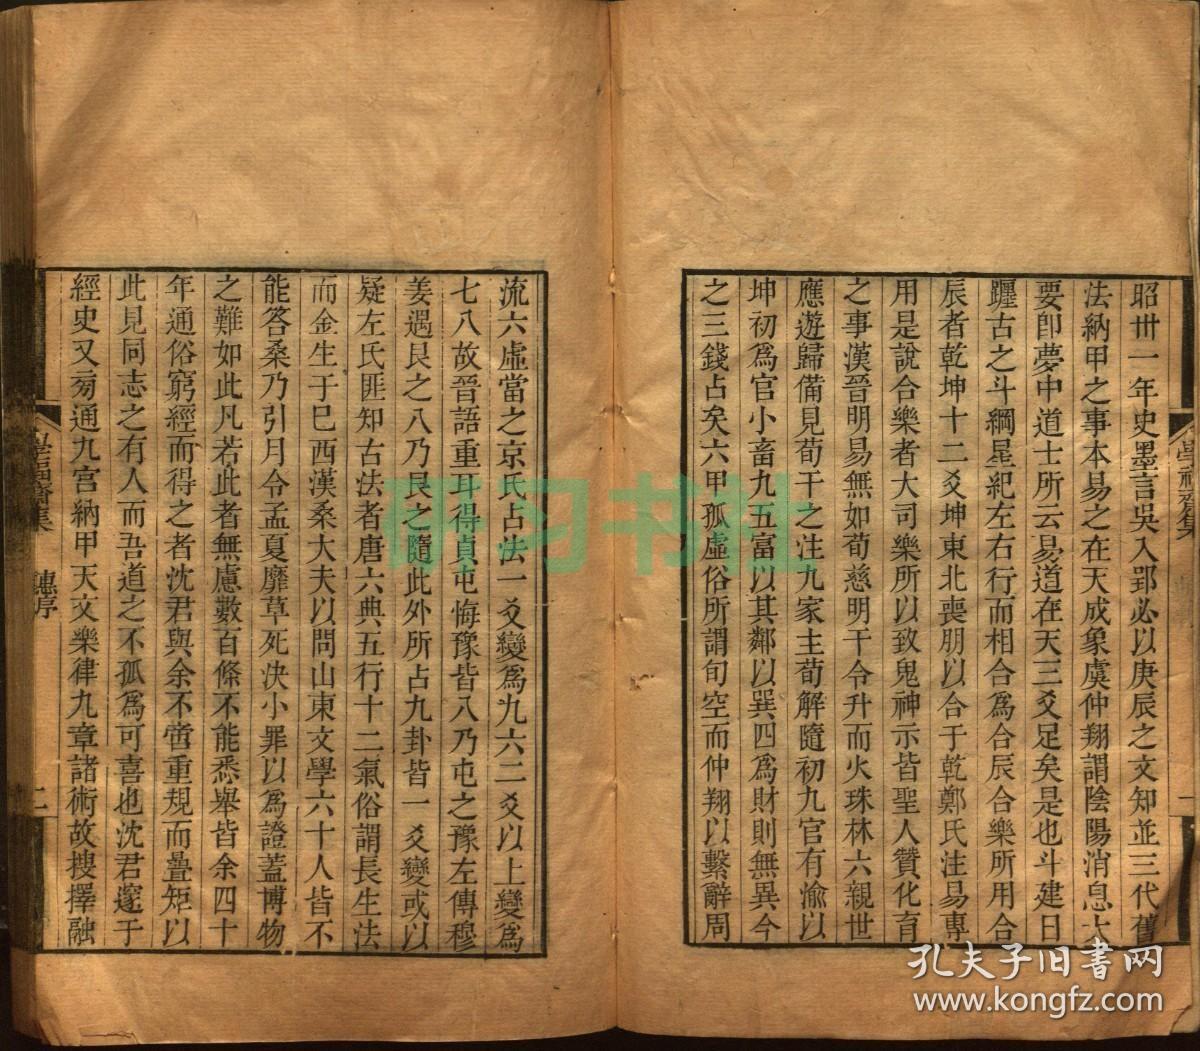 昭卅一年史墨言吳入郢必以庚辰之文知並三代舊
法納甲之事本易之在天成象虞仲翔謂陰陽消息大
要卽夢中道士所云易道在天三爻足矣是也斗建日
躔古之斗綱星紀左右行而相合為合辰合樂所用合
辰者乾坤十二爻坤東北喪朋以合于乾鄭氏注易專
用是說合樂者大司樂所以致鬼神示皆聖人贊化育
之事漢晉明易無如荀慈明干令升而火珠林六親世
應遊歸備見荀干之注九家主荀解隨初九官有渝以
坤初爲官小畜九五富以其鄰以巽四爲財則無異今
之三錢占矣六甲孤虛俗所謂旬空而仲翔以繫辭周
流六虛當之京氏占法一爻變爲九六二爻以上變爲
七八故晉語重耳得貞屯悔豫皆八乃屯之豫左傳穆
姜遇艮之八乃艮之隨此外所占九卦皆一爻變或以
疑左氏匪知古法者唐六典五行十二氣俗謂長生法
而金生于巳西漢桑大夫以問山東文學六十人皆不
能答桑乃引月令孟夏靡草死決小罪以爲證蓋博物
之難如此凡若此者無慮數百條不能悉舉皆余四十
年通俗窮經而得之者沈君與余不啻重規而疊矩以
此見同志之有人而吾道之不孤爲可喜也沈君邃于
經史又菊通九宮納甲天文樂律九章諸術故搜擇融
序
二
研习书社
孔夫子旧书网
www.kongfz.com